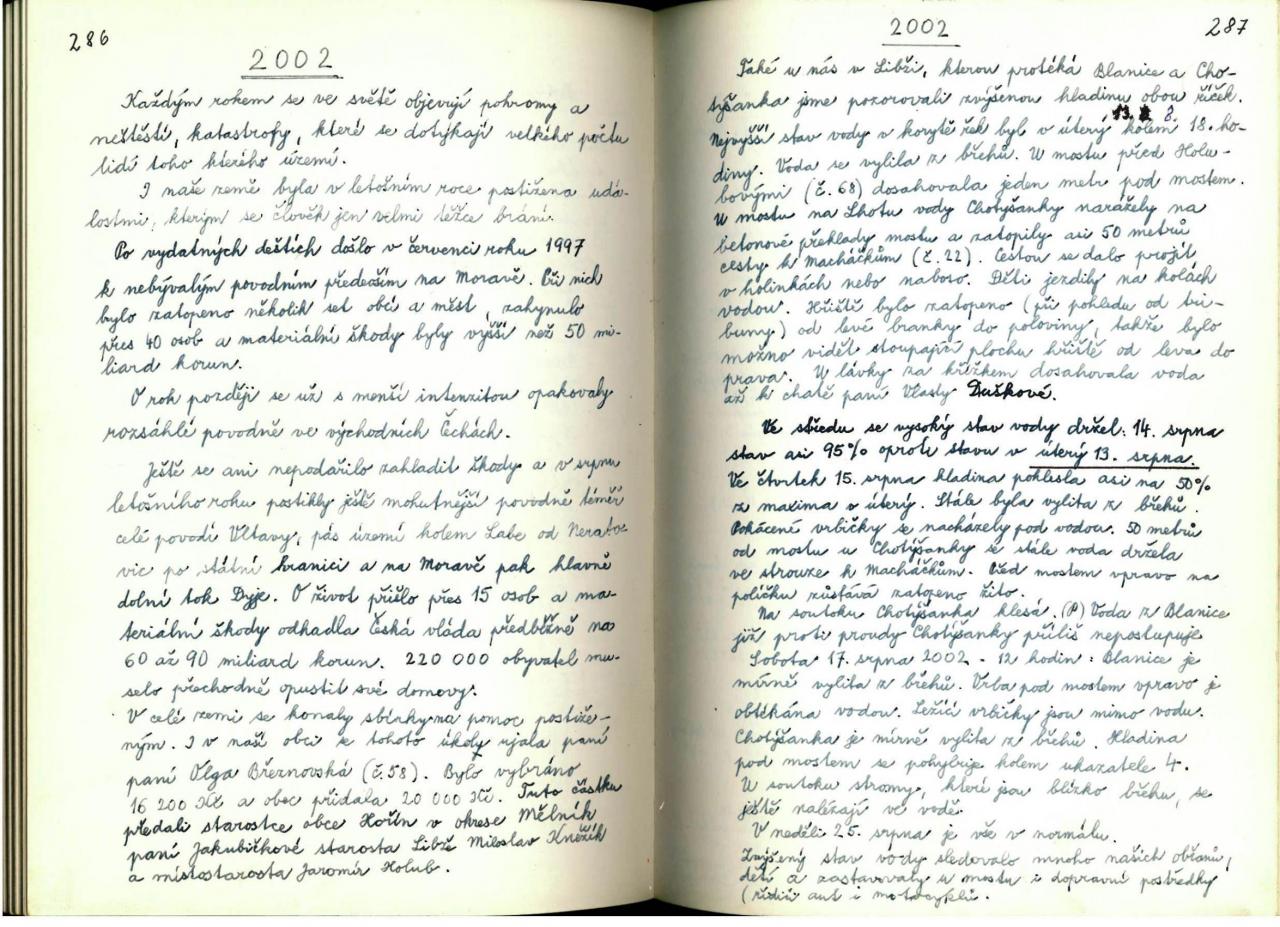 286
2002
Každým rokem se ve světě objevují pohromy a
neštěstí, katastrofy, které se dotýkají velkého počtu
lidí toho kterého území.
I naše země byla v letošním roce postižena udá-
lostmi, kterým se člověk jen velmi těžce brání.
Po vydatných deštích došlo v červenci roku 1997
k nebývalým povodním především na Moravě. Při nich
bylo zatopeno několik set obcí a měst, zahynulo
přes 40 osob a materiální škody byly vyšší než 50 mi-
liard korun.
O rok později se už s menší intenzitou opakovaly
rozsáhlé povodně ve východních Čechách.
Ještě se ani nepodařilo zahladit škody a v srpnu
letošního roku postikly ještě mohutnější povodně téměř
celé povodí Vltavy, pás území kolem Labe od Nerato-
vic po státní hranici a na Moravě pak hlavně
dolní tok Dyje. O život přišlo přes 15 osob a ma-
teriální škody odhadla Česká vláda předběžně na
60 až 90 miliard korun. 220 000 obyvatel mu-
selo přechodně opustit své domovy.
V celé zemi se konaly sbírky na pomoc postiže-
ným. I v naší obci se tohoto úkoly ujala paní
paní Olga Březnovská (č. 58). Bylo vybráno
16 200 Kč a obec přidala 20 000 Kč. Tuto částku
předali starostce obce Hořín v okrese Mělník
paní Jakubičkové starosta Libže Miloslav Kněžík
a místostarosta Jaromír Holub.
2002
287
Také u nás v Libži, kterou protéká Blanice a Cho-
týšanka jsme pozorovali zvýšenou hladinu obou říček.
13. 8.
Nejvyšší stav vody v korytě řek byl v úterý kolem 18. ho-
diny. Voda se vylila z břehů. U mostu před Holu-
bovými (č. 68) dosahovala jeden metr pod mostem.
U mostu na Lhotu vody Chotýšanky narážely na
betonové překlady mostu a zatopily asi 50 metrů
cesty k Macháčkům (č. 22). Cestou se dalo projít
v holinkách nebo naboso. Děti jezdily na kolách
vodou. Hřiště bylo zatopeno (při pohledu od tri-
buny) od levé branky do poloviny, takže bylo
možno vidět stoupající plochu hřiště od leva do
prava. U lávky za křížkem dosahovala voda
až k chatě paní Vlasty Duškové.
Ve středu se vysoký stav vody držel: 14. srpna
stav asi 95% oproti stavu v úterý 13. srpna.
Ve čtvrtek 15. srpna hladina poklesla asi na 50%
z maxima v úterý. Stále byla vylita z břehů.
Pokácené vrbičky se nacházely pod vodou. 50 metrů
od mostu u Chotýšanky se stále voda držela
ve strouze k Macháčkům. Před mostem vpravo na
políčku zůstává zatopeno žito.
Na soutoku Chotýšanka klesá. (P) Voda z Blanice
již proti proudy Chotýšanky příliš nepostupuje
Sobota 17. srpna 2002 - 12 hodin: Blanice je
mírně vylita z břehů. Vrba pod mostem vpravo je
obtékána vodou. Ležící vrbičky jsou mimo vodu.
Chotýšanka je mírně vylita z břehů. Hladina
pod mostem se pohybuje kolem ukazatele 4.
U soutoku stromy, které jsou blízko břehu, se
ještě nalézají ve vodě.
V neděli 25. srpna je vše v normálu.
Zvýšený stav vody sledovalo mnoho našich občanů,
dětí a zastavovaly u mostu i dopravní postředky
(řidiči aut i motocyklů.